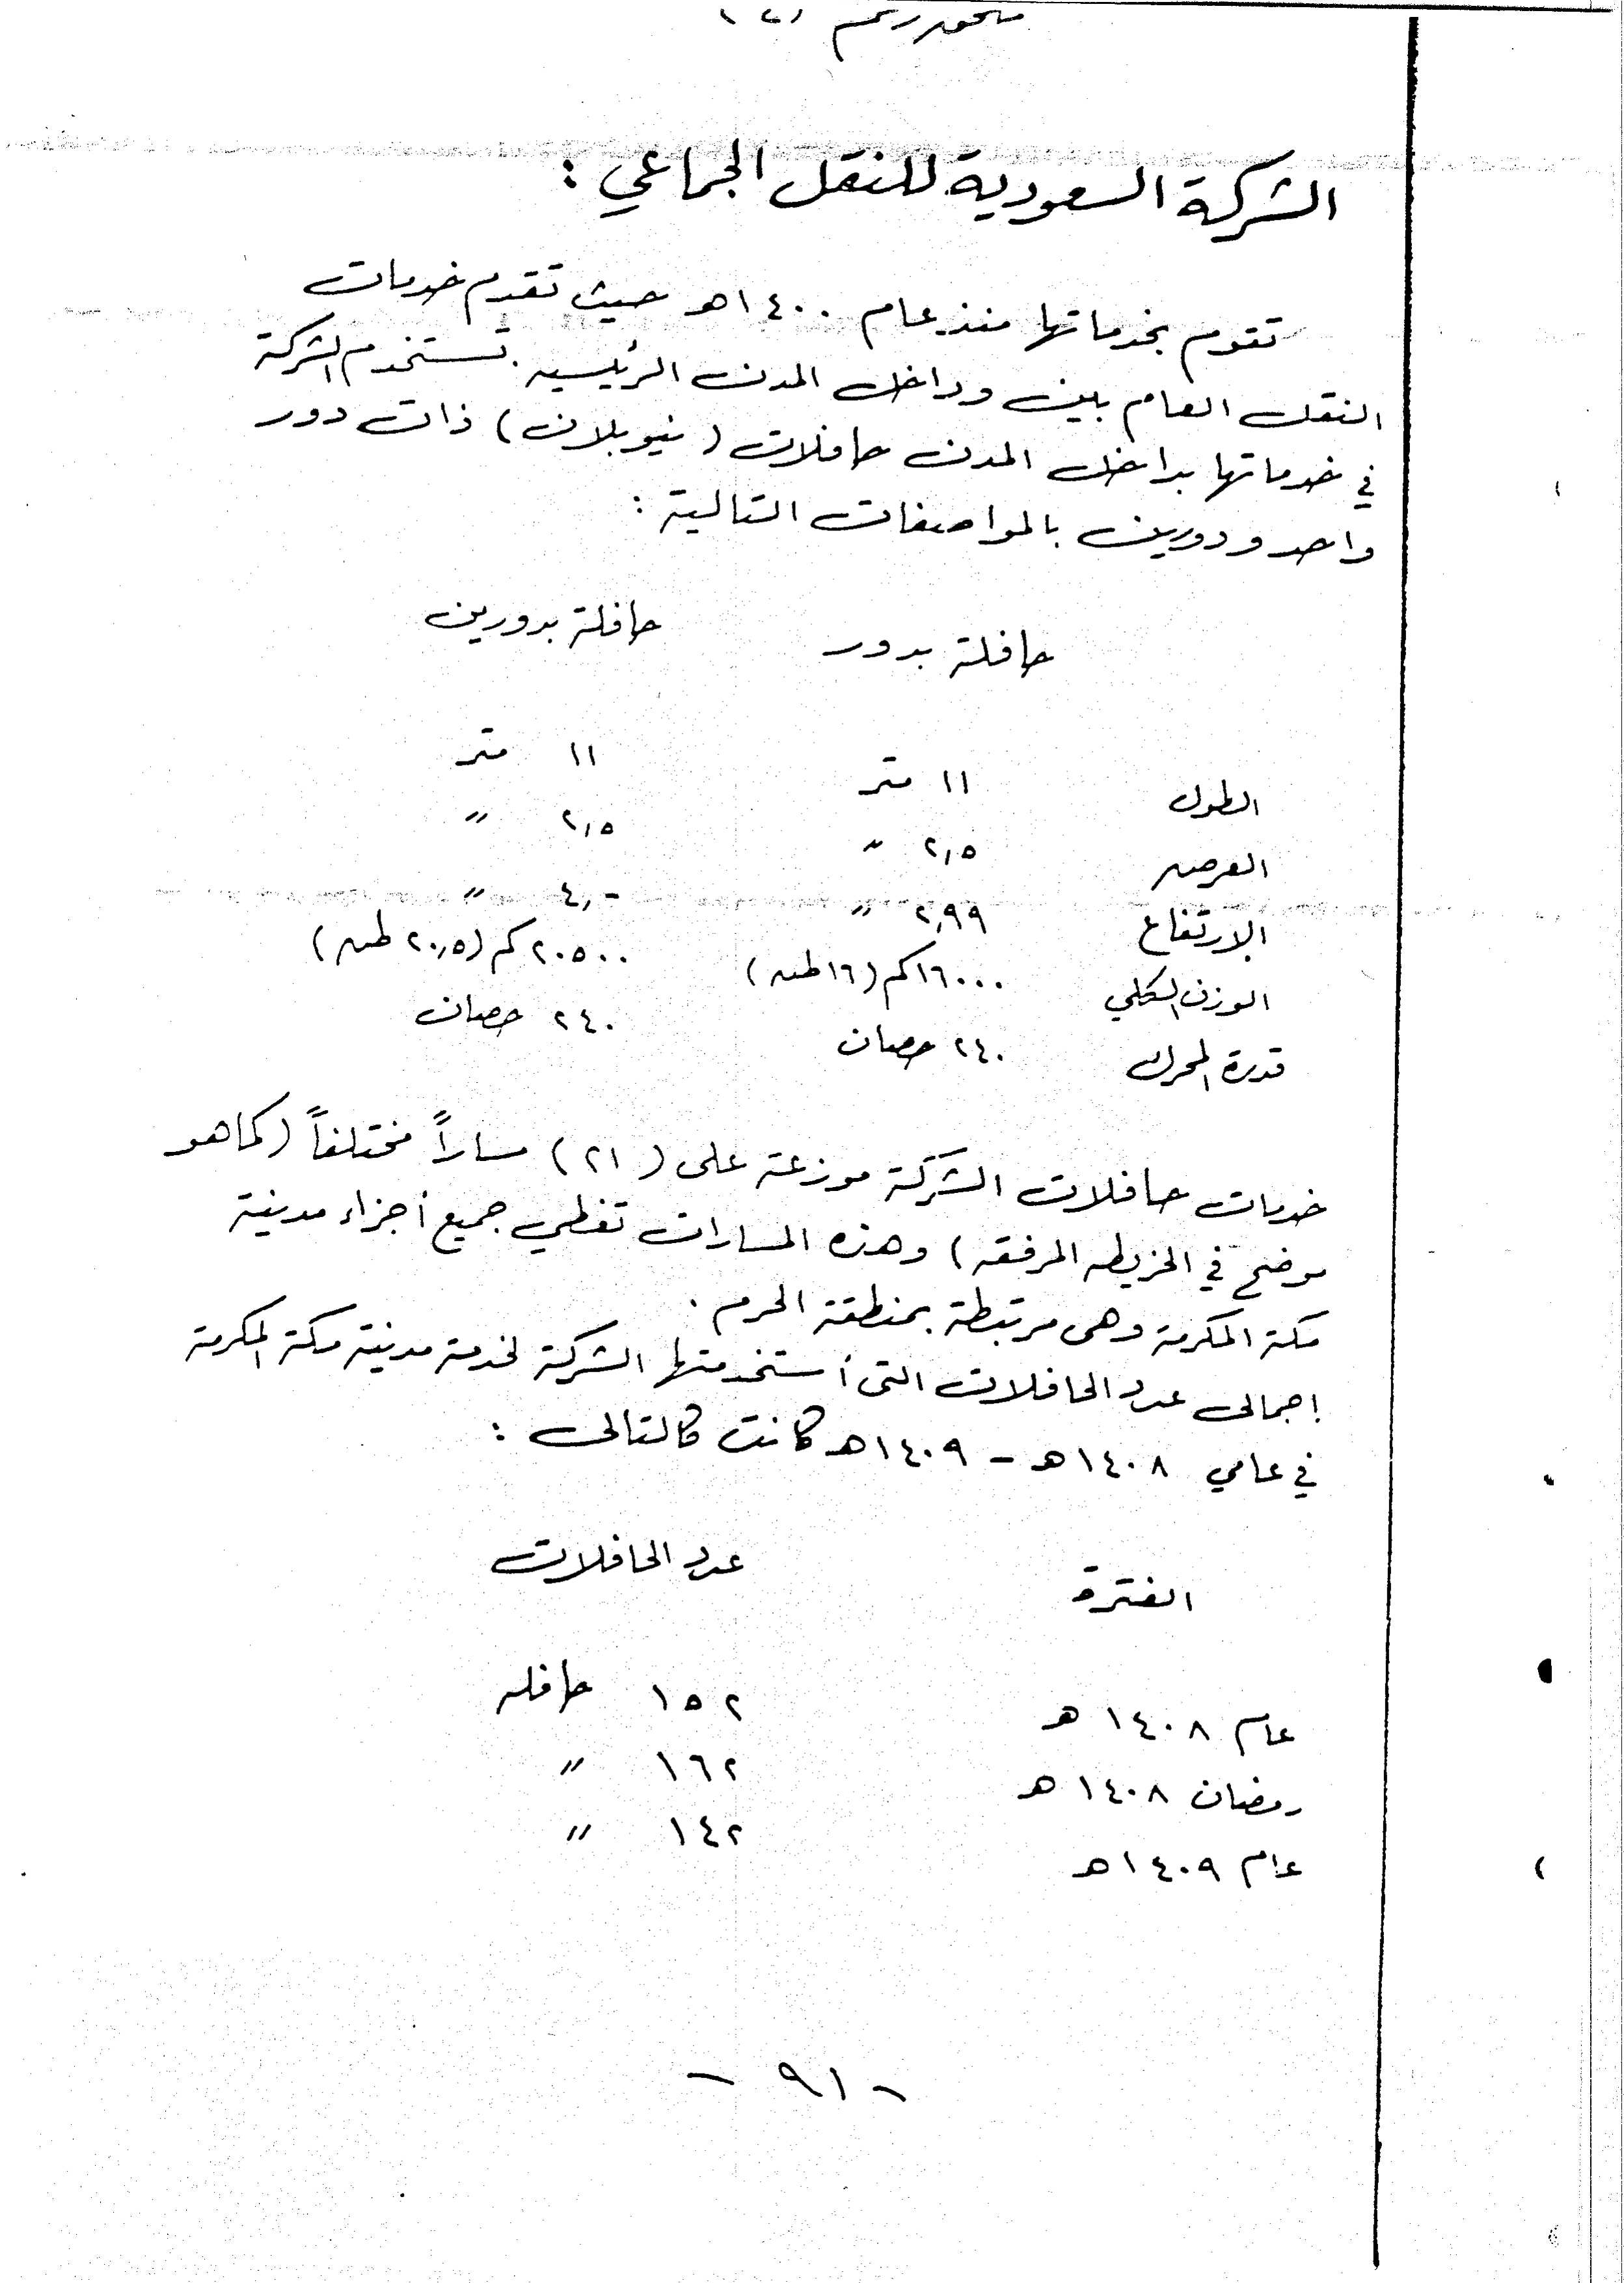 ملحق رقم
الشركة السعودية للنقل الجماعي :
تقوم بخدماتها منذ عام ١٤٠٠هـ حيث تقدم خدمات
النقل العام بين وداخل المدن الرئيسيه . تستخدم الشركة
في خدماتها بداخل المدن حافلات (نيوبلان) ذات دور
واحد ودورين بالمواصفات التالية :
حافلة بدور حافلة بدورين
الطول ١١ متر ١١ متر
العرض ٢,٥ " ٢,٥ "
الارتفاع ٢,٩٩ " ٤,- "
الوزن الكلي ١٦٠٠٠كم (١٦طن) ٢٠٥٠٠كم (٢٠,٥ طن)
قدرة المحرك ٢٤٠ حصان ٢٤٠ حصان
خدمات حافلات الشركة موزعة على (٢١) مساراً مختلفاً (كما هو
موضح في الخريطه المرفقه) وهذه المسارات تغطي جميع أجزاء مدينة
مكة المكرمة وهى مرتبطة بمنطقة الحرم .
إجمالى عدد الحافلات التى أستخدمتها الشركة لخدمة مدينة مكة المكرمة
في عامي ١٤٠٨هـ - ١٤٠٩هـ كانت كالتالى :
الفترة عدد الحافلات
عام ١٤٠٨ هـ ١٥٢ حافله
رمضان ١٤٠٨ هـ ١٦٢ "
عام ١٤٠٩هـ ١٤٢ "
- ٩١ -